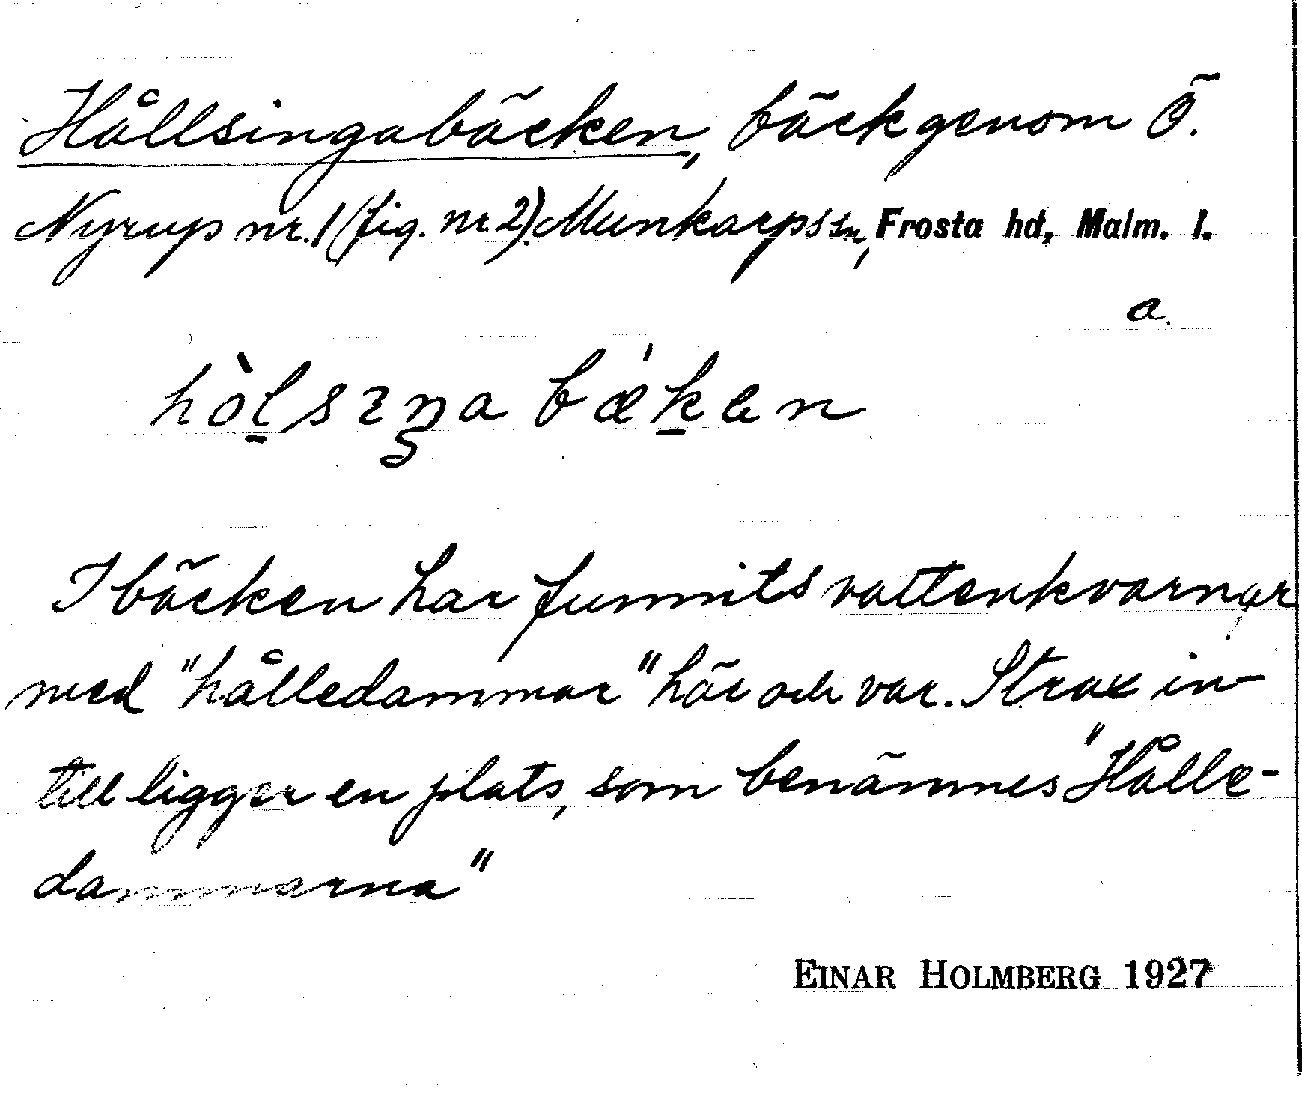 Hållsingabäcken, bäck genom Ö.
Nyrup nr. 1 (fig. nr 2). Munkarps sn, Frosta hd, Malm. l.
a.
hòlsɪŋa bǽkɐn
I bäcken har funnits vattenkvarnar
med "hålledammar" här och var. Strax in-
till ligger en plats, som benämnes "Hålle-
dammarna"
EINAR HOLMBERG 1927